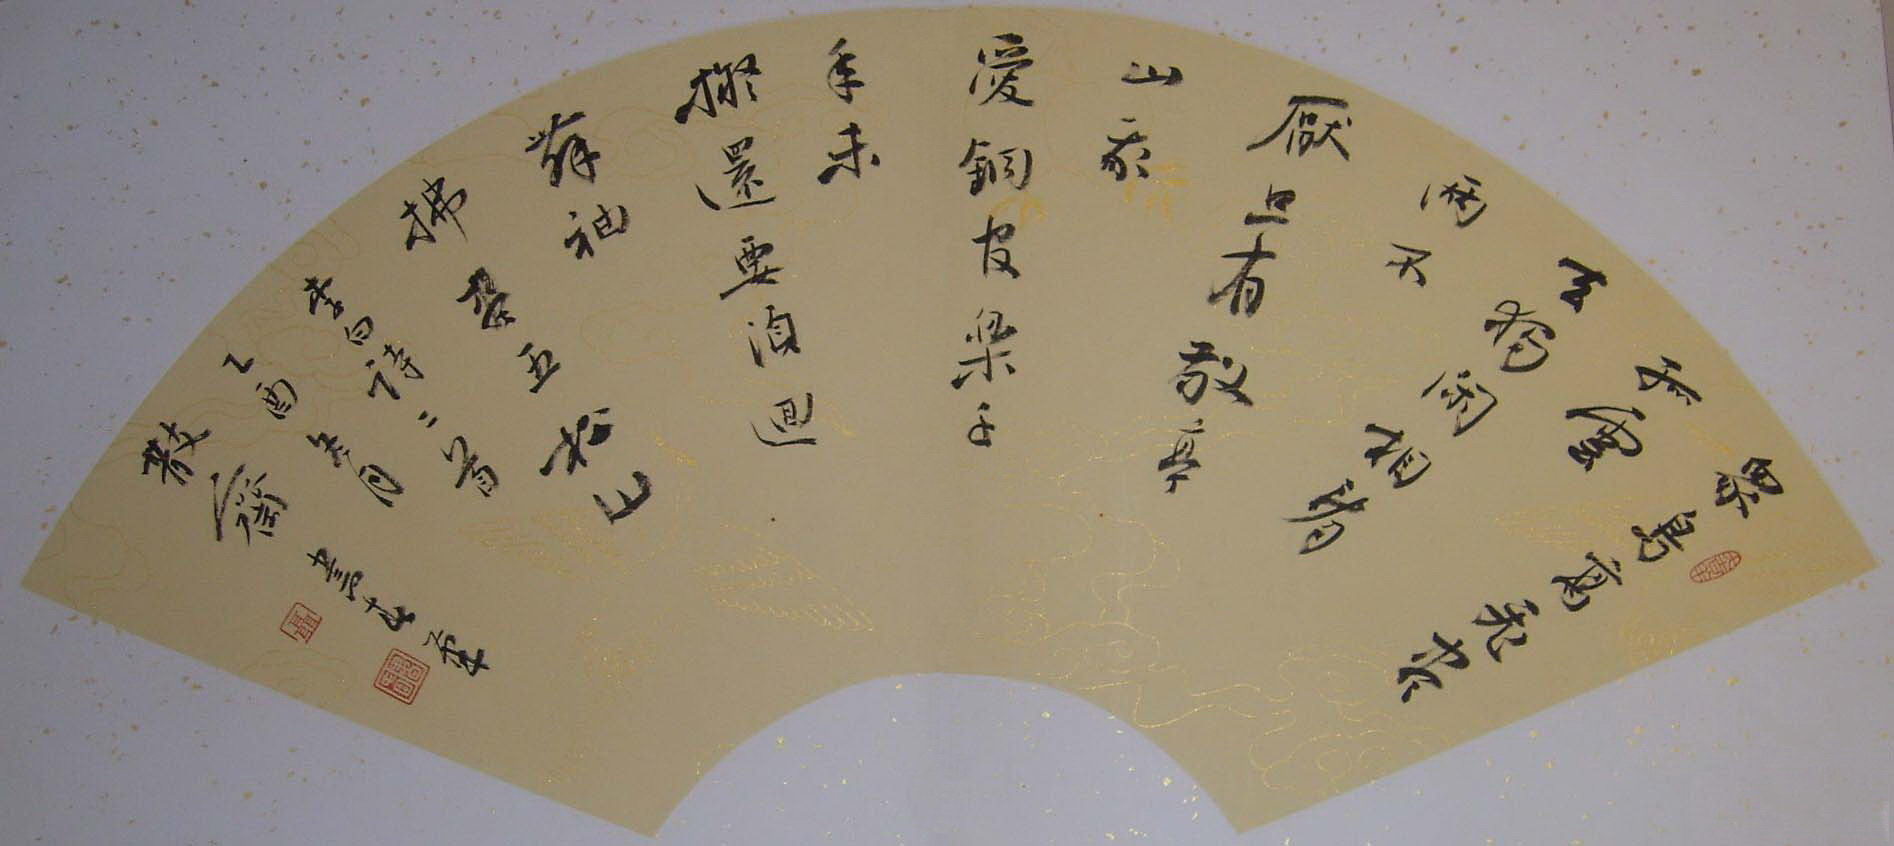 眾鳥高飛尽
孤雲
去獨閑相看
两不
厭只有敬亭
山我
愛銅官樂千
年未
擬還要須迴
舞袖
拂尽五松山
李白詩二首
乙酉 月
散齋書於